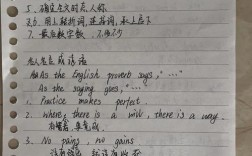 5. 确定主义时态,人称
3.6. 用上转折词,连接词,承上启下
7. 最后数字数
名人名言或谚语
As the English proverb says, "……"
As the saying goes, "……"
1. Practice makes perfect.
2. where there is a will, there is a way.
有志者,事竟成.
3. No pains, no gains
没有